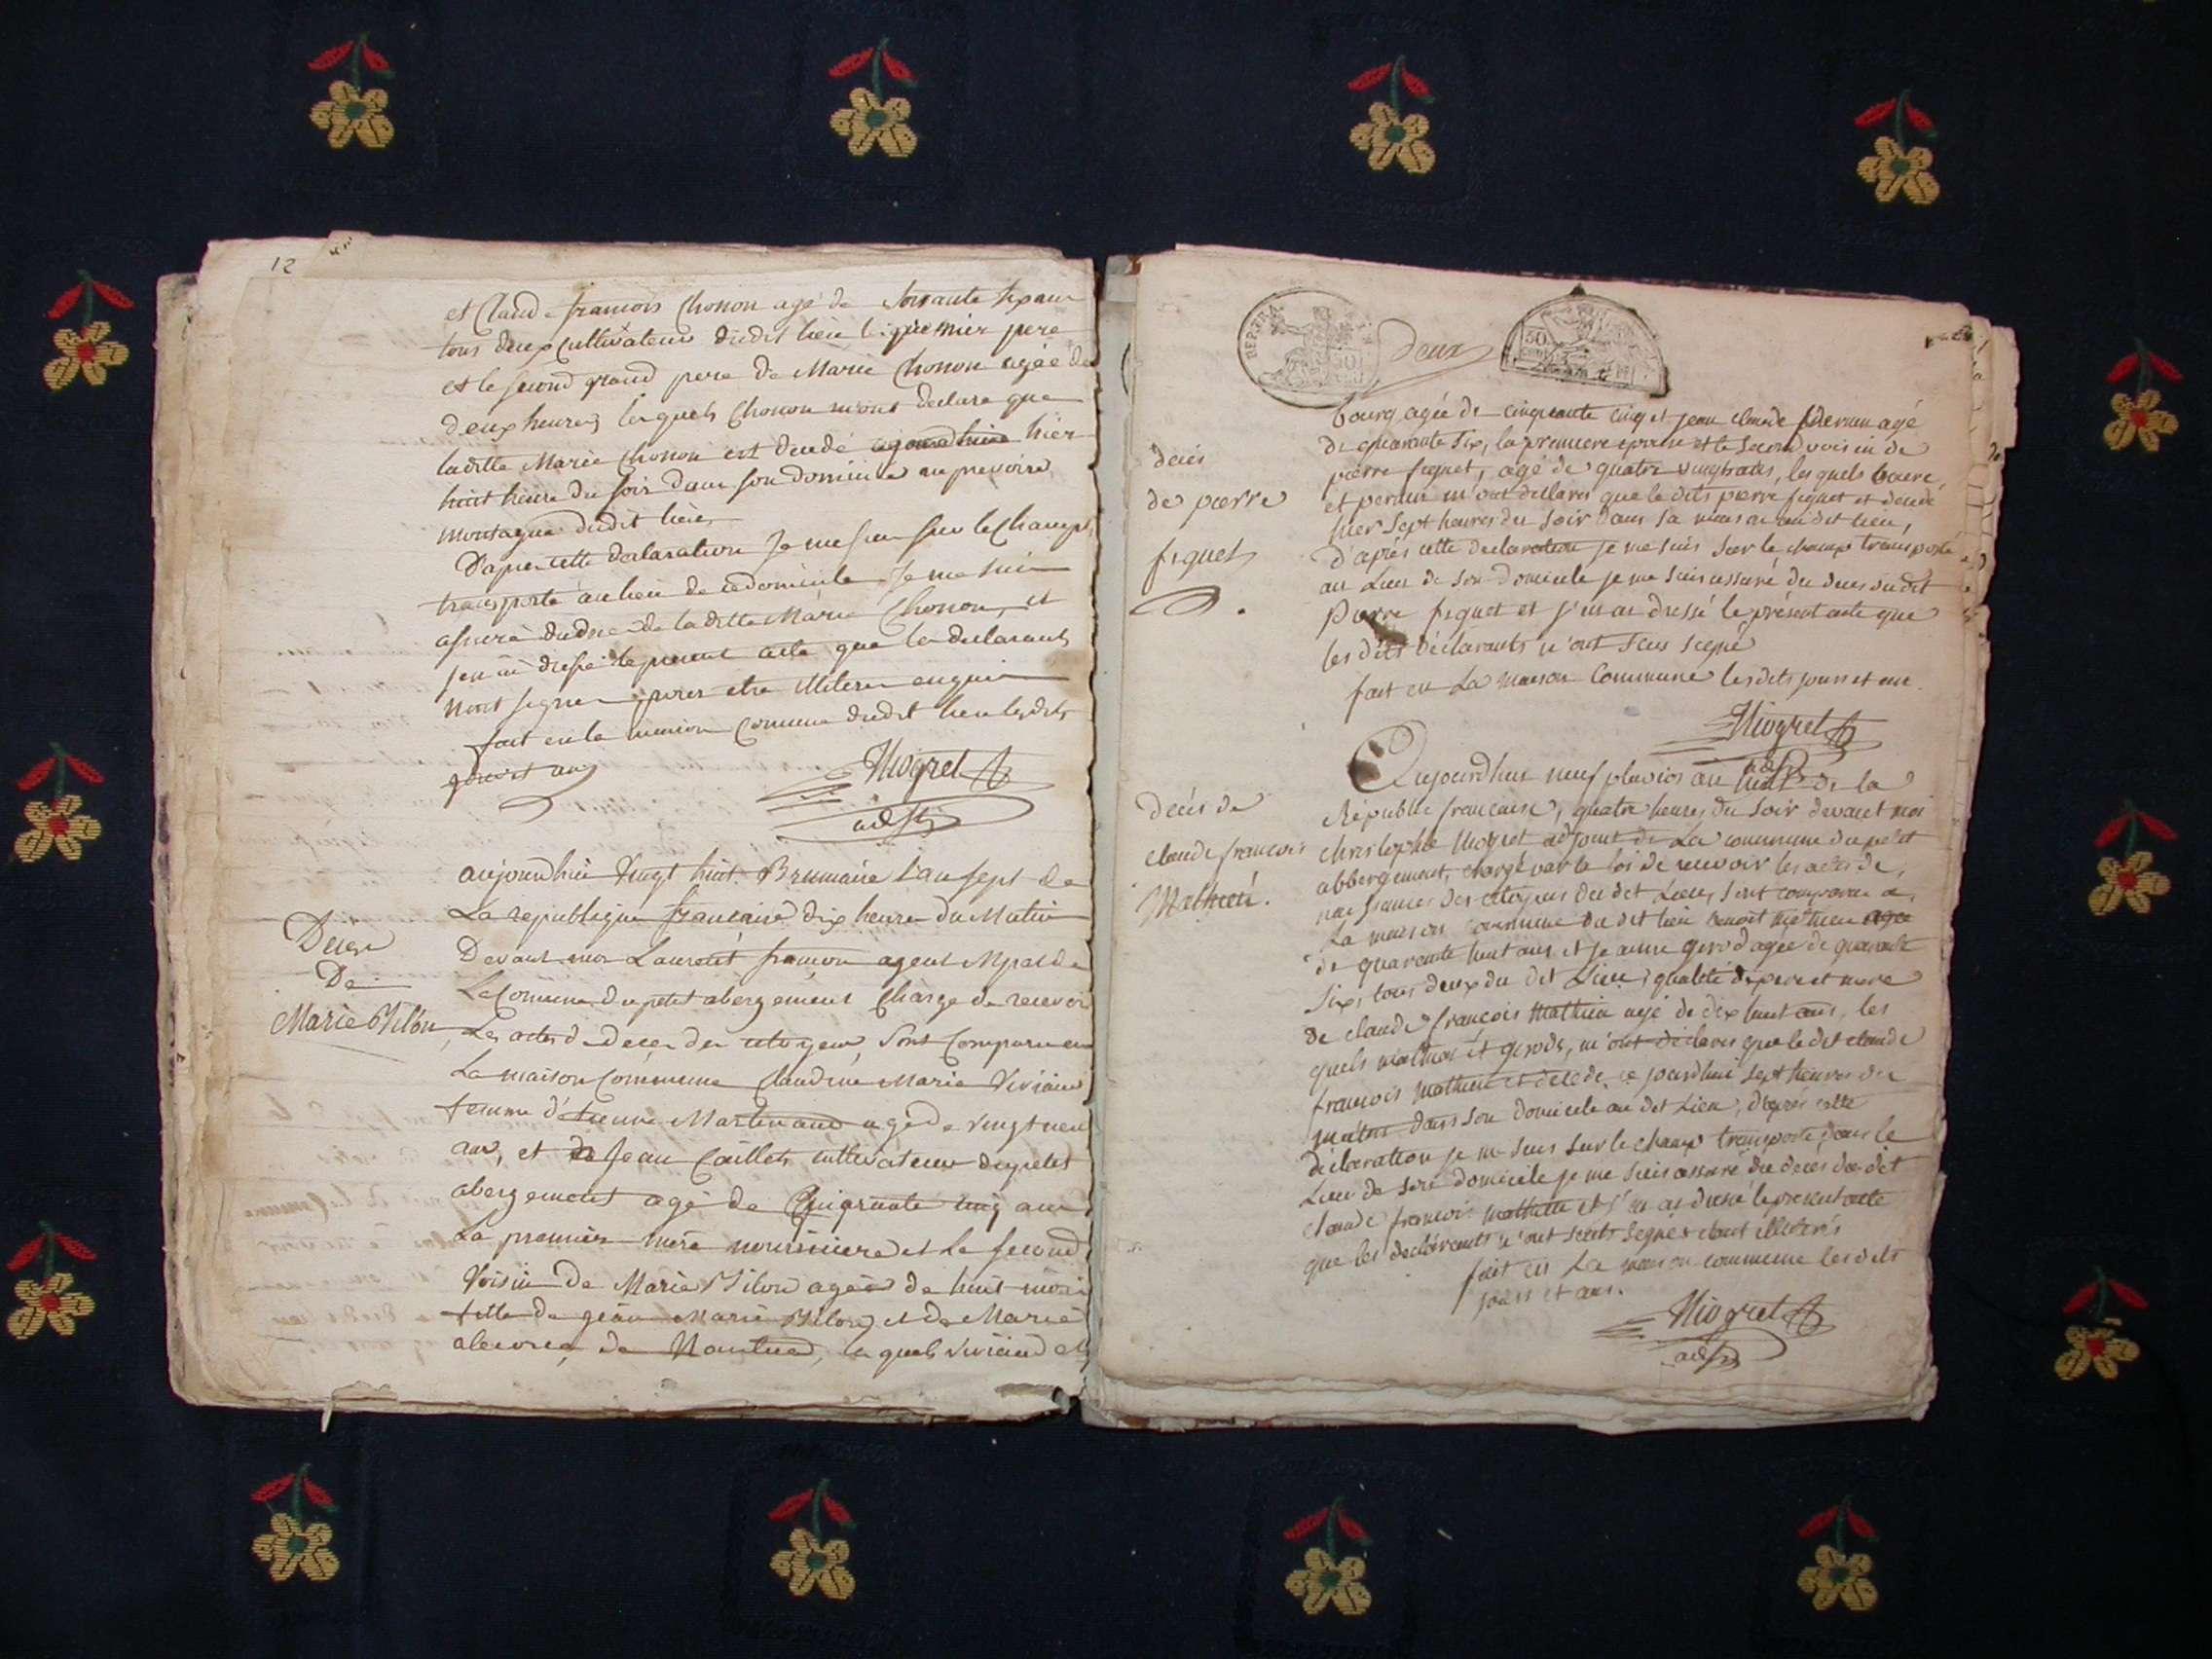 12
et Claude francois Chonon agé de Soixante six ans
tous deux Cultivateur dudit lieu le premier pere
et le second grand pere de Marie Chonon agée de
deux heures, lesquels Chonon m'ont declaré que
laditte Marie Chonon est decedé aujourdhui hier
huit heure du soir dans son domicile au
montagne dudit lieu
D'apres cette declaration Je me suis sur le Champ
transporté au lieu de ce domicile Je me suis
assuré du deces de la ditte Marie Chonon, et
j'en ai dressé le present acte que les declarants
n'ont signer pour etre illiteré enquis
fait en la maison Commune dudit lieu lesdits
jour et an
Miogret
adjt
Deces
De
Marie
aujourdhui vingt huit Brumaire l'an sept de
La republique francaise dix heure du Matin
Devant moi Laurent francon agent Mpal de
La Comune du petit abergement Chargé de recevoir
Les actes de deces des citoyens, Sont Comparu en
La maison Commune Claudine Marie Viviand
femme d'étienne Martinand agé de vingt neuf
ans, et de Jean Caillet cultivateur du petit
abergement agé de Cinquante cinq ans
La premiere mere nourriciere et Le second
Voisin de Marie agée de huit mois
fille de jean Marie et de Marie
de Nantua, les quels Viviand et
REP. FRA.
50
deux
50
decés
de pierre
fiquet
bourg agée de cinquante cinq et jean claude pernin agé
de quarante six, la premiere epouse et le second voisin de
pierre fiquet, agé de quatre vingt ans, les quels
et pernin m'ont declarés que le dits pierre fiquet et decedé
hier sept heures du soir dans sa maison au dit lieu,
d'après cette declaration je me suis sur le champ transporté
au Lieu de son domicile je me suis assuré du deces du dit
Pierre fiquet et j'en ai dressé le présent acte que
les dits déclarants n'ont seus signé
fait en La maison Commune les dits jours et an.
Miogret
adjt
Decés de
claude francois
Mathieu.
Aujourd'hui neuf pluvios an huit de la
République francaise, quatre heures du soir devant moi
christophle Miogret adjoint de La commune du petit
abbergement, chargé par la loi de recevoir les actes de
naissances des citoyens du dit Lieu, sont comparu a
La maison commune du dit lieu benoit Mathieu agé
de quarante huit ans et jeanne girod agée de quarante
six, tous deux du dit Lieu, qualité de pere et mere
de claude françois Mathieu agé de dix huit ans, les
quels mathieu et girods, m'ont déclarés que le dit claude
francois Mathieu et décédé ce jourdhui sept heures du
matin dans son domicile au dit Lieu, d'après cette
déclaration je me suis sur le champ transporté dans le
Lieu de son domicile je me suis assuré du decés du dit
claude francois mathieu et j'en ai dressé le present acte
que les declarants n'ont seus signés etant illiterés
fait en La maison commune les dits
jours et ans.
Miogret
adjt